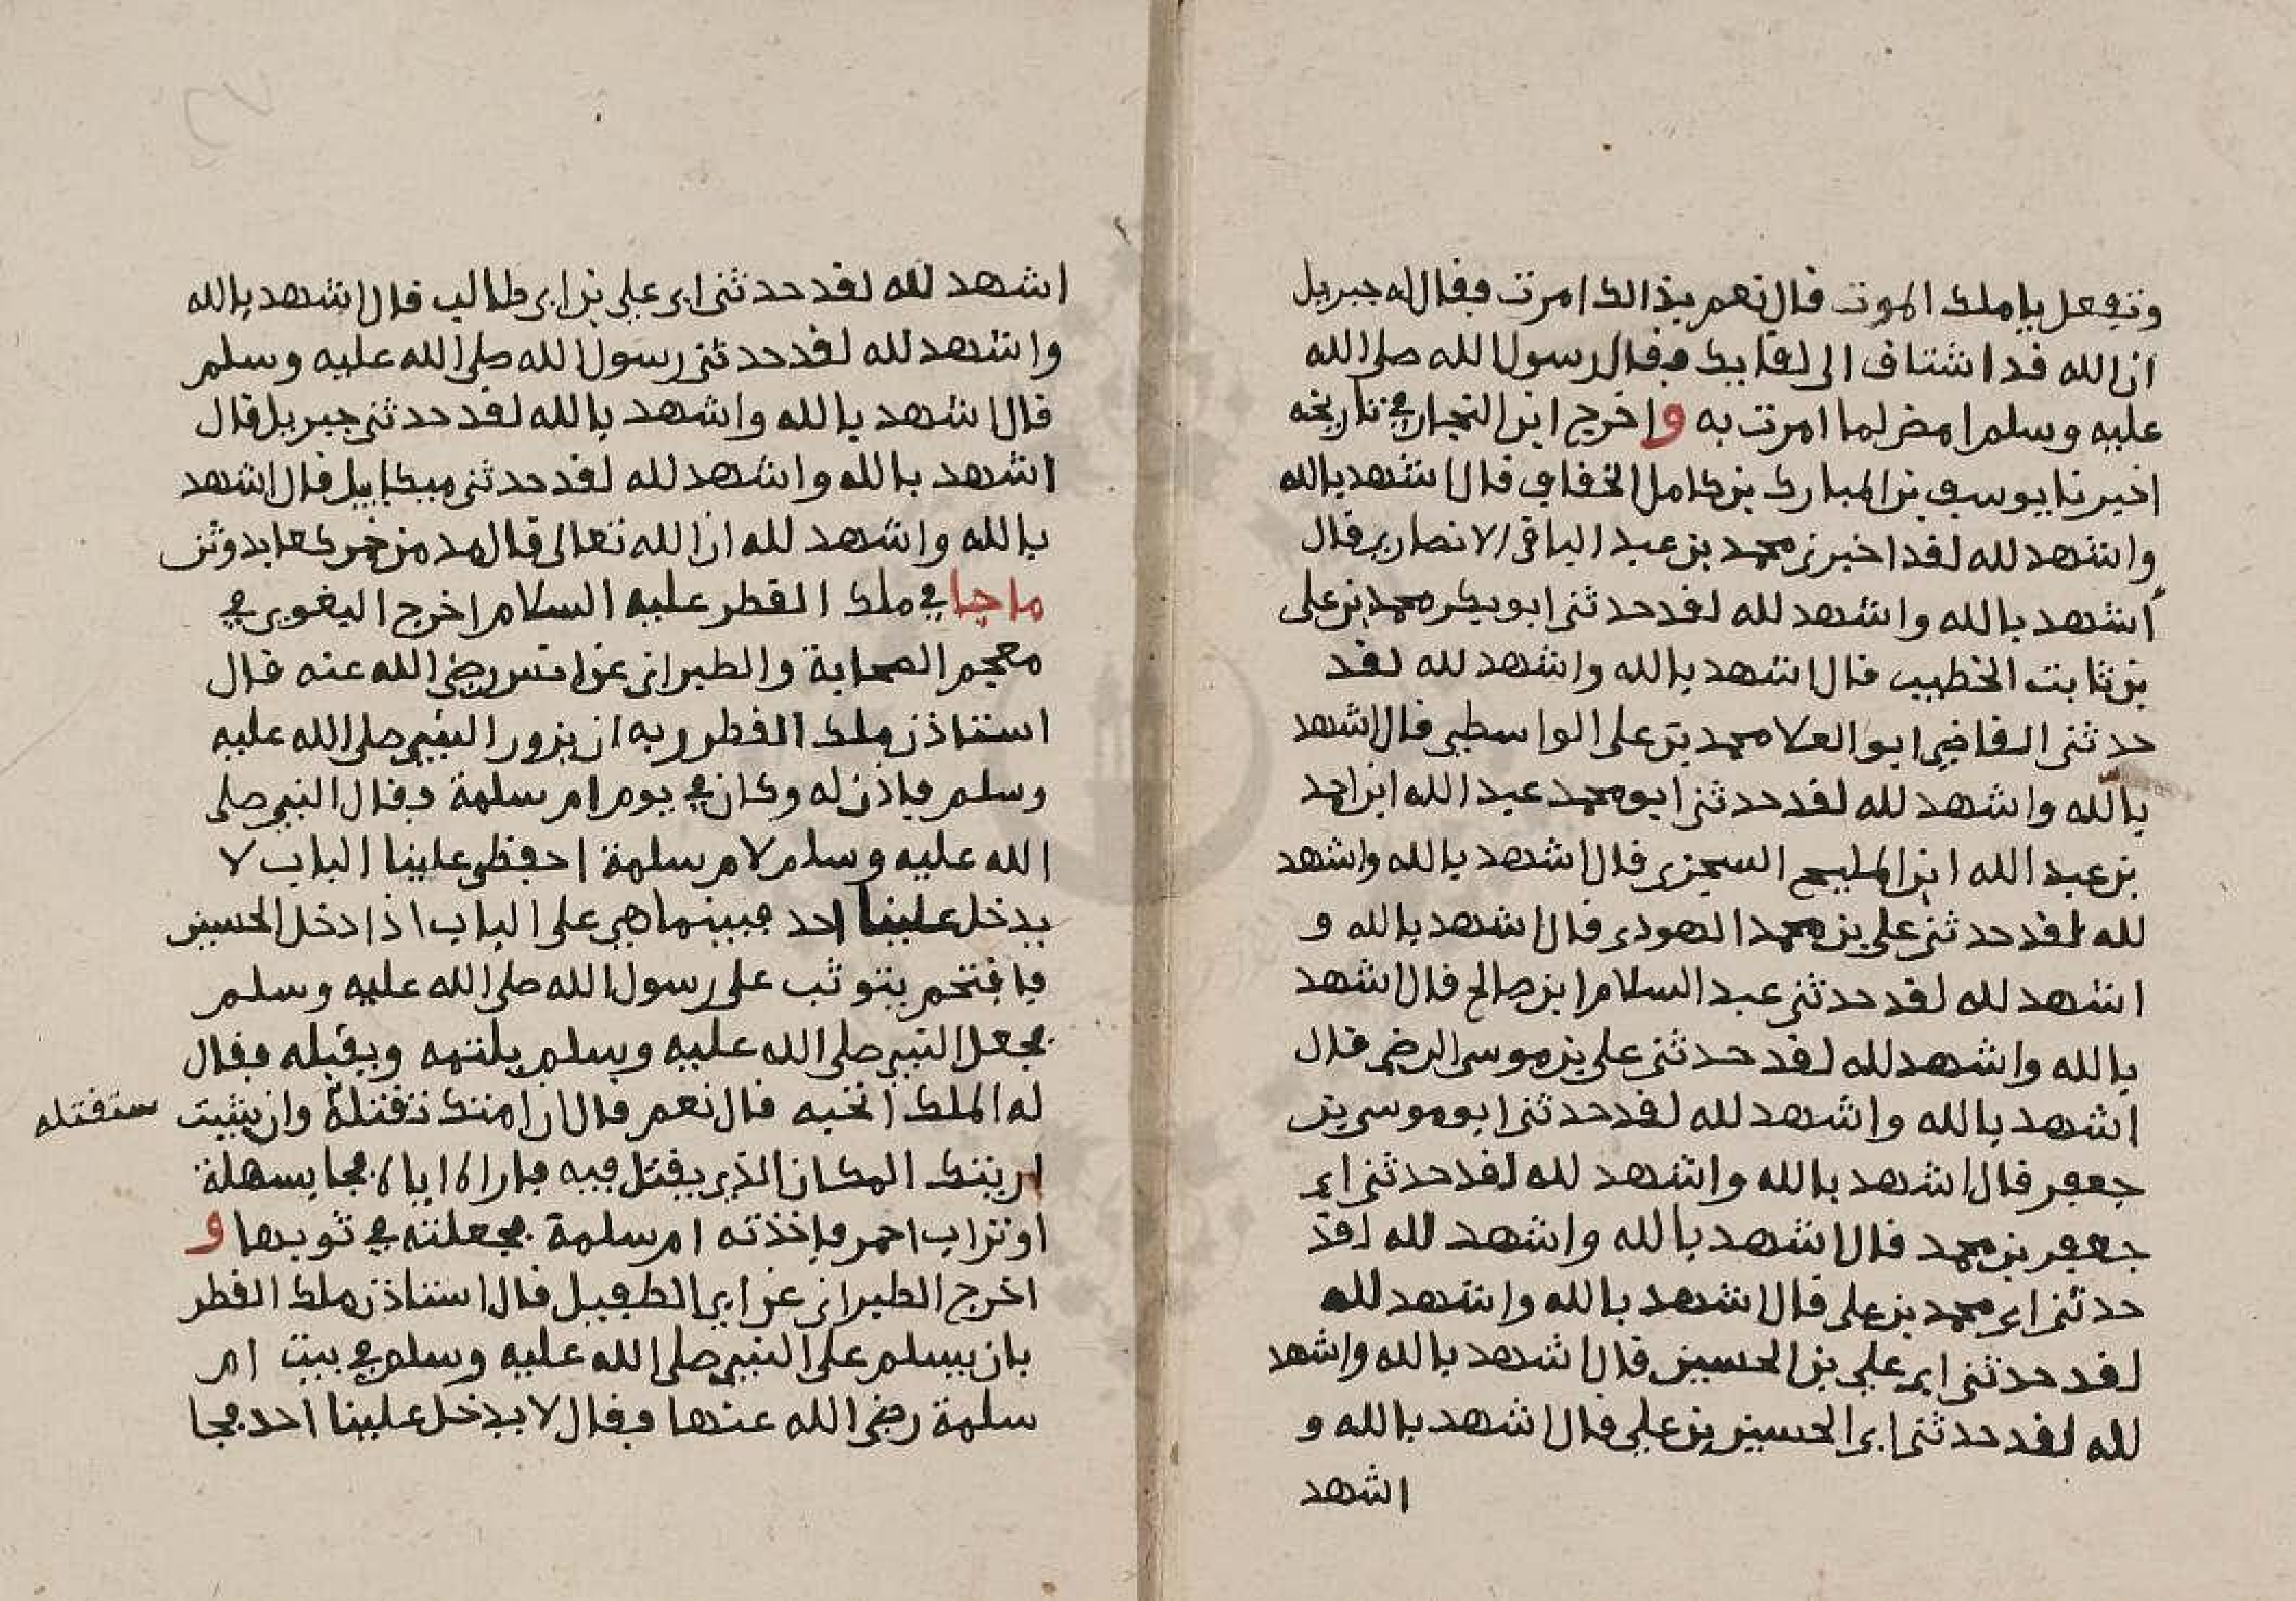 وتفعل يا ملك الموت قال نعم بذالك امرت فقال له جبريل
ان الله قد اشتاق الى لقايك فقال رسول الله صلى الله
عليه وسلم امض لما امرت به واخرج ابن النجار في تاريخه
اخبرنا يوسف بن المبارك بن كامل الخفاف قال اشهد بالله
واشهد لله لقد اخبرني محمد بن عبد الباقي الانصاري قال
اشهد بالله واشهد لله لقد حدثني ابو بكر محمد بن على
بن ثابت الخطيب قال اشهد بالله واشهد لله لقد
حدثني القاضي ابو العلا محمد بن على الواسطي قال اشهد
بالله واشهد لله لقد حدثني ابو محمد عبد الله ابن احمد
بن عبد الله ابن المليح السجزي قال اشهد بالله واشهد
لله لقد حدثني علي بن محمد الهودي قال اشهد بالله و
اشهد لله لقد حدثني عبد السلام ابن صالح قال اشهد
بالله واشهد لله لقد حدثني علي بن موسى الرضى قال
اشهد بالله واشهد لله لقد حدثني ابو موسى بن
جعفر قال اشهد بالله واشهد لله لقد حدثني ابي
جعفر بن محمد قال اشهد بالله واشهد لله لقد
حدثني ابي محمد بن على قال اشهد بالله واشهد لله
لقد حدثني ابي علي بن الحسين قال اشهد بالله واشهد
لله لقد حدثني ابي الحسين بن علي قال اشهد بالله و
اشهد
اشهد لله لقد حدثني ابي علي بن ابي طالب قال اشهد بالله
واشهد لله لقد حدثني رسول الله صلى الله عليه وسلم
قال اشهد بالله واشهد بالله لقد حدثني جبريل قال
اشهد بالله واشهد لله لقد حدثني ميكاييل قال اشهد
بالله واشهد لله ان الله تعالى قال مدمن خمر كعابد وثن
ما جا في ملك القطر عليه السلام اخرج البغوي في
معجم الصحابة والطبراني عن انس رضي الله عنه قال
استاذن ملك القطر ربه ان يزور النبي صلى الله عليه
وسلم فاذن له وكان في يوم ام سلمة فقال النبي صلى
الله عليه وسلم لام سلمة احفظي علينا الباب لا
يدخل علينا احد فبينما هي على الباب اذا دخل الحسين
فاقتحم يتوثب على رسول الله صلى الله عليه وسلم
فجعل النبي صلى الله عليه وسلم يلثمه ويقبله فقال
له الملك اتحبه قال نعم قال ان امتك تقتله وان شيت
ستقتله
اريتك المكان الذي يقتل فيه فاراه اياه فجا بسهلة
او تراب احمر فاخذته ام سلمة فجعلته في ثوبها و
اخرج الطبراني عن ابي الطفيل قال استاذن ملك القطر
بان يسلم على النبي صلى الله عليه وسلم في بيت ام
سلمة رضي الله عنها فقال لا يدخل علينا احد فجا